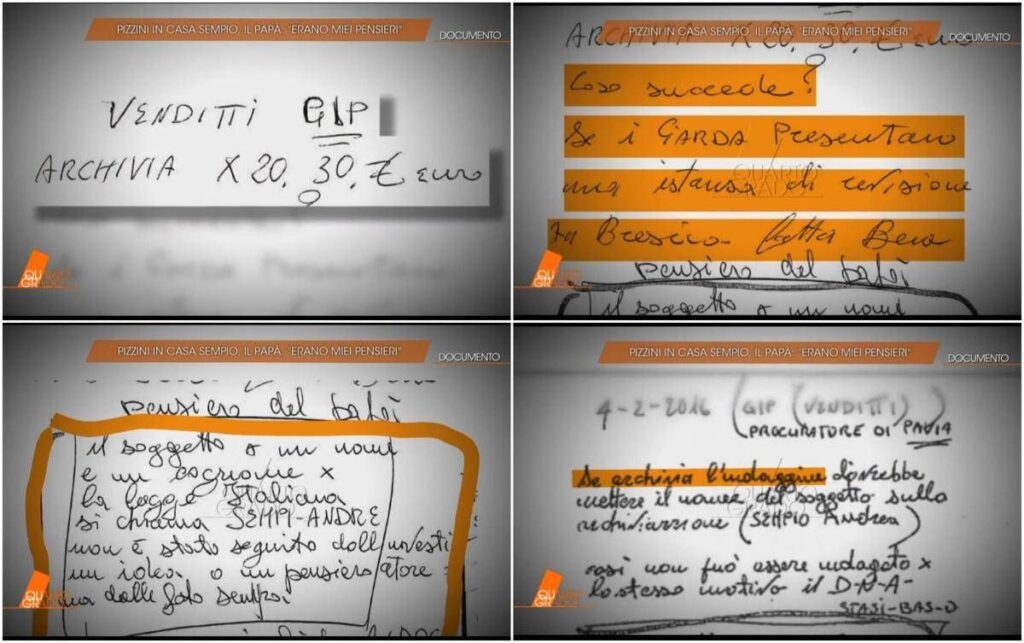 PIZZINI IN CASA SEMPIO, IL PAPÀ: "ERANO MIEI PENSIERI"
DOCUMENTO
VENDITTI GIP
ARCHIVIA X 20. 30. € euro
?
QUARTO
GRADO
PIZZINI IN CASA SEMPIO, IL PAPÀ: "ERANO MIEI PENSIERI"
DOCUMENTO
ARCHIVIA X 20. 30. € euro
Cosa succede?
Se i GARDA Presentano
una istansa di revisione
Brescia fatta Bene
pensiero del
il soggetto a un nome
QUARTO
GRADO
QUARTO
GRADO
PIZZINI IN CASA SEMPIO, IL PAPÀ: "ERANO MIEI PENSIERI"
DOCUMENTO
pensiero del
il soggetto a un nome
e un cognome x
la legge Italiana
si chiama SEMPI-ANDRE
non è stato seguito dall'investi
un idea o un pensiero atore
ma dalle
QUARTO
GRADO
PIZZINI IN CASA SEMPIO, IL PAPÀ: "ERANO MIEI PENSIERI"
DOCUMENTO
4-2-2016 (GIP (VENDITTI)
(PROCURATORE DI PAVIA
Se archivia l'indaggine dovrebbe
mettere il nome del soggetto sulla
(SEMPIO Andrea)
cosi non può essere indagato x
lo stesso motivo il D-N-A-
STASI-BAS-O
QUARTO
GRADO